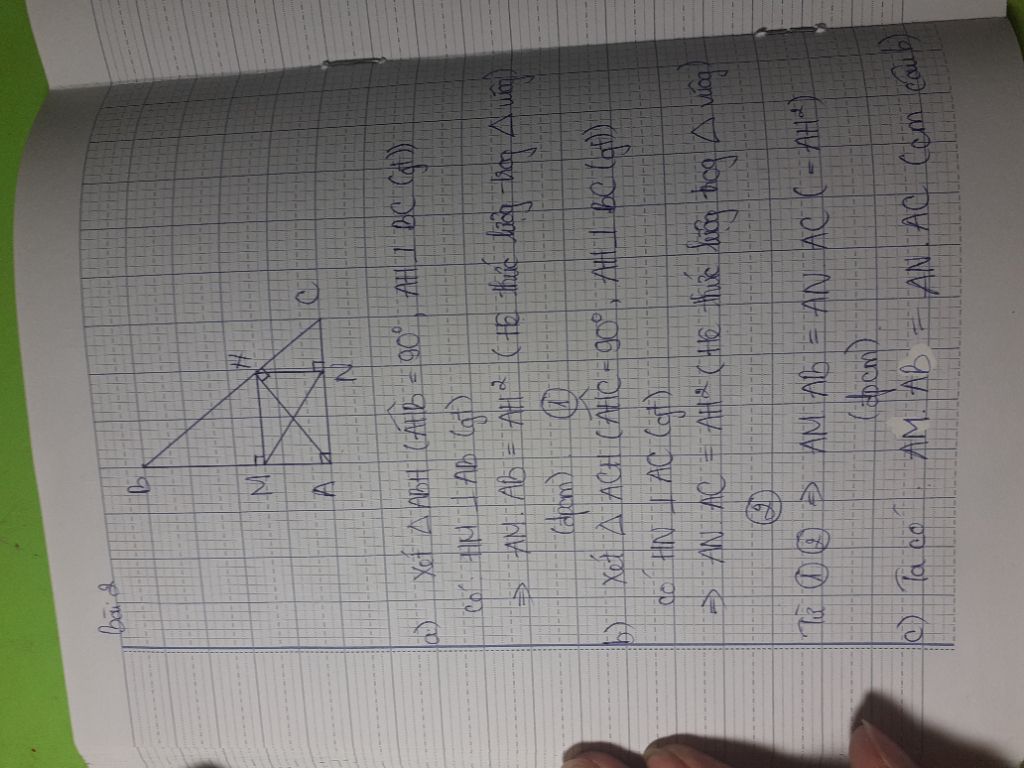 bài 2
B
H
C
M
A
N
a) Xét △ ABH (AHB = 90°, AH ⊥ BC (gt))
có HM ⊥ AB (gt)
⇒ AM. AB = AH² (Hệ thức lượng trong △ vuông)
(đpcm) ①
b) Xét △ ACH (AHC = 90°, AH ⊥ BC (gt))
có HN ⊥ AC (gt)
⇒ AN. AC = AH² (Hệ thức lượng trong △ vuông)
②
Từ ① ② ⇒ AM. AB = AN. AC (= AH²)
(đpcm)
c) Ta có: AM. AB = AN. AC (cm câu b)